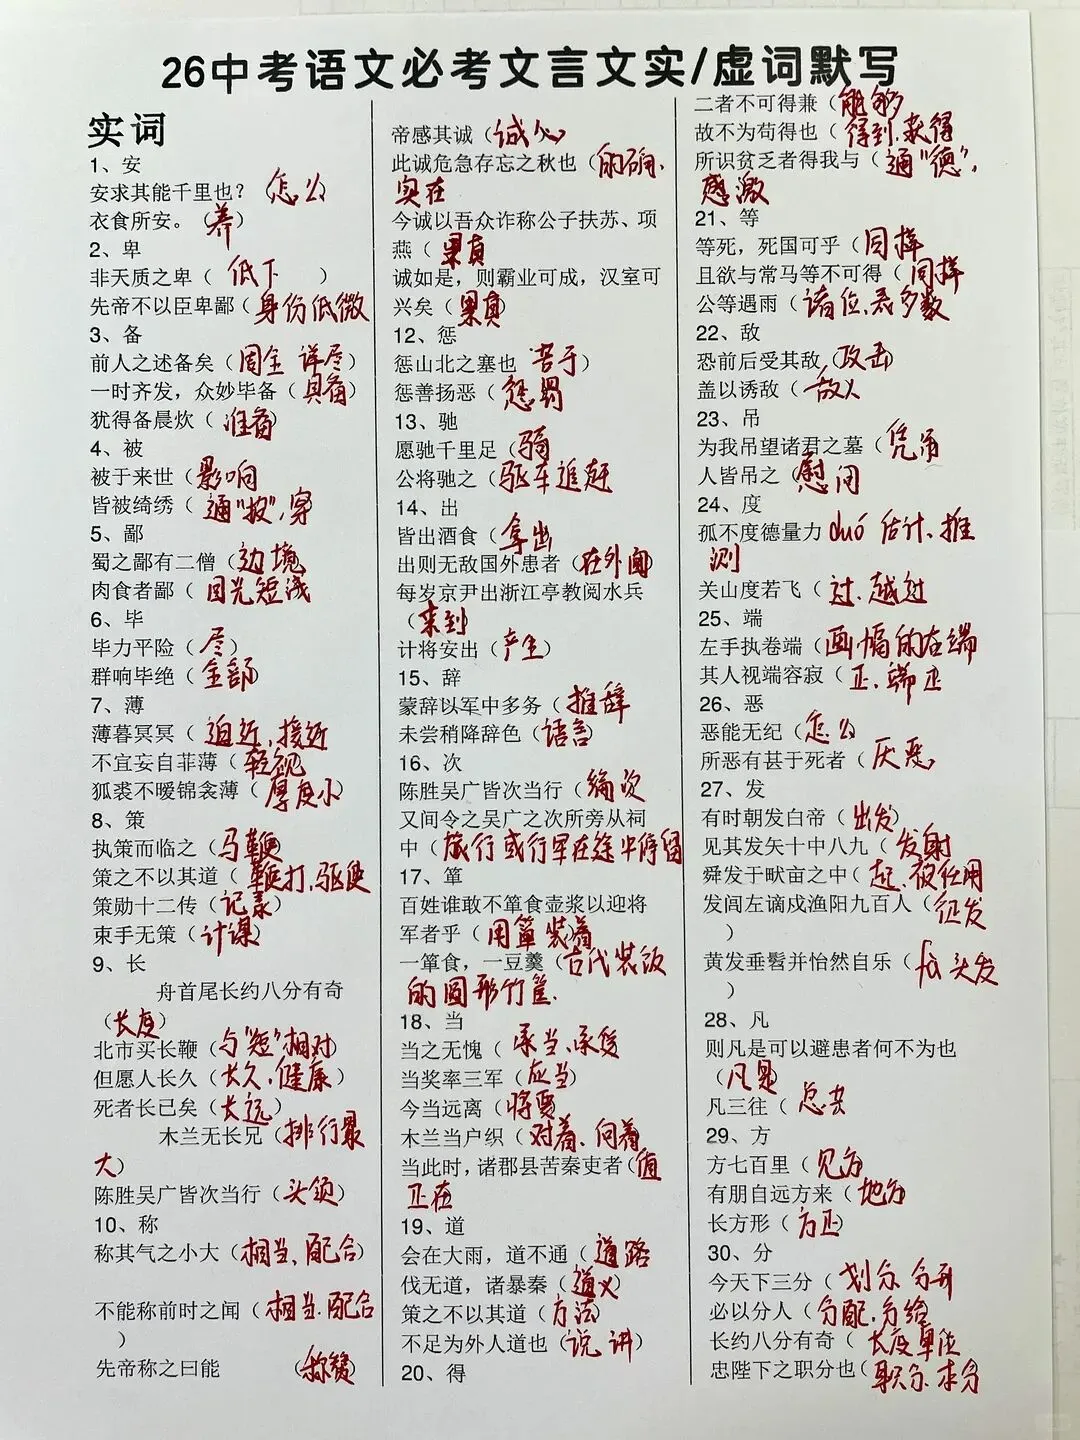 26中考语文必考文言文实/虚词默写
实词
1、安
安求其能千里也？（怎么）
衣食所安。（养）
2、卑
非天质之卑（低下）
先帝不以臣卑鄙（身份低微
3、备
前人之述备矣（周全 详尽）
一时齐发，众妙毕备（具备）
犹得备晨炊（准备）
4、被
被于来世（影响
皆被绮绣（通"披",穿
5、鄙
蜀之鄙有二僧（边境
肉食者鄙（目光短浅
6、毕
毕力平险（尽）
群响毕绝（全部）
7、薄
薄暮冥冥（迫近,接近
不宜妄自菲薄（轻视
狐裘不暖锦衾薄（厚度小）
8、策
执策而临之（马鞭）
策之不以其道（鞭打,驱使
策勋十二传（记录）
束手无策（计谋）
9、长
舟首尾长约八分有奇
（长度）
北市买长鞭（与"短"相对）
但愿人长久（长久,健康）
死者长已矣（长远）
木兰无长兄（排行最
大）
陈胜吴广皆次当行（头领）
10、称
称其气之小大（相当、配合）
不能称前时之闻（相当.配合
）
先帝称之曰能（称赞）
帝感其诚（诚心
此诚危急存忘之秋也（的确、
实在
今诚以吾众诈称公子扶苏、项
燕（果真
诚如是，则霸业可成，汉室可
兴矣（果真）
12、惩
惩山北之塞也 苦于）
惩善扬恶（惩罚
13、驰
愿驰千里足（骑
公将驰之（驱车追赶
14、出
皆出酒食（拿出
出则无敌国外患者（在外面）
每岁京尹出浙江亭教阅水兵
（来到
计将安出（产生）
15、辞
蒙辞以军中多务（推辞
未尝稍降辞色（语言）
16、次
陈胜吴广皆次当行（编次
又间令之吴广之次所旁从祠
中（旅行或行军在途中停留
17、箪
百姓谁敢不箪食壶浆以迎将
军者乎（用箪装着
一箪食，一豆羹（古代装饭
的圆形竹筐.
18、当
当之无愧（承当、承受
当奖率三军（应当）
今当远离（将要
木兰当户织（对着、向着
当此时，诸郡县苦秦吏者（值
正在
19、道
会在大雨，道不通（道路
伐无道，诸暴秦（道义）
策之不以其道（方法）
不足为外人道也（说 讲）
20、得
二者不可得兼（能够）
故不为苟得也（得到.获得
所识贫乏者得我与（通"德",
感激
21、等
等死，死国可乎（同样
且欲与常马等不可得（同样
公等遇雨（诸位,表多数
22、敌
恐前后受其敌（攻击
盖以诱敌（敌人
23、吊
为我吊望诸君之墓（凭吊
人皆吊之（慰问
24、度
孤不度德量力 duó 估计、推
测
关山度若飞（过.越过
25、端
左手执卷端（画幅的右端
其人视端容寂（正.端正
26、恶
恶能无纪（怎么
所恶有甚于死者（厌恶
27、发
有时朝发白帝（出发）
见其发矢十中八九（发射
舜发于畎亩之中（起.被任用
发闾左谪戍渔阳九百人（征发
）
黄发垂髫并怡然自乐（fà 头发
）
28、凡
则凡是可以避患者何不为也
（凡是
凡三往（总共
29、方
方七百里（见方
有朋自远方来（地方
长方形（方正）
30、分
今天下三分（划分 分开
必以分人（分配.分给
长约八分有奇（长度单位
忠陛下之职分也（职分.本分